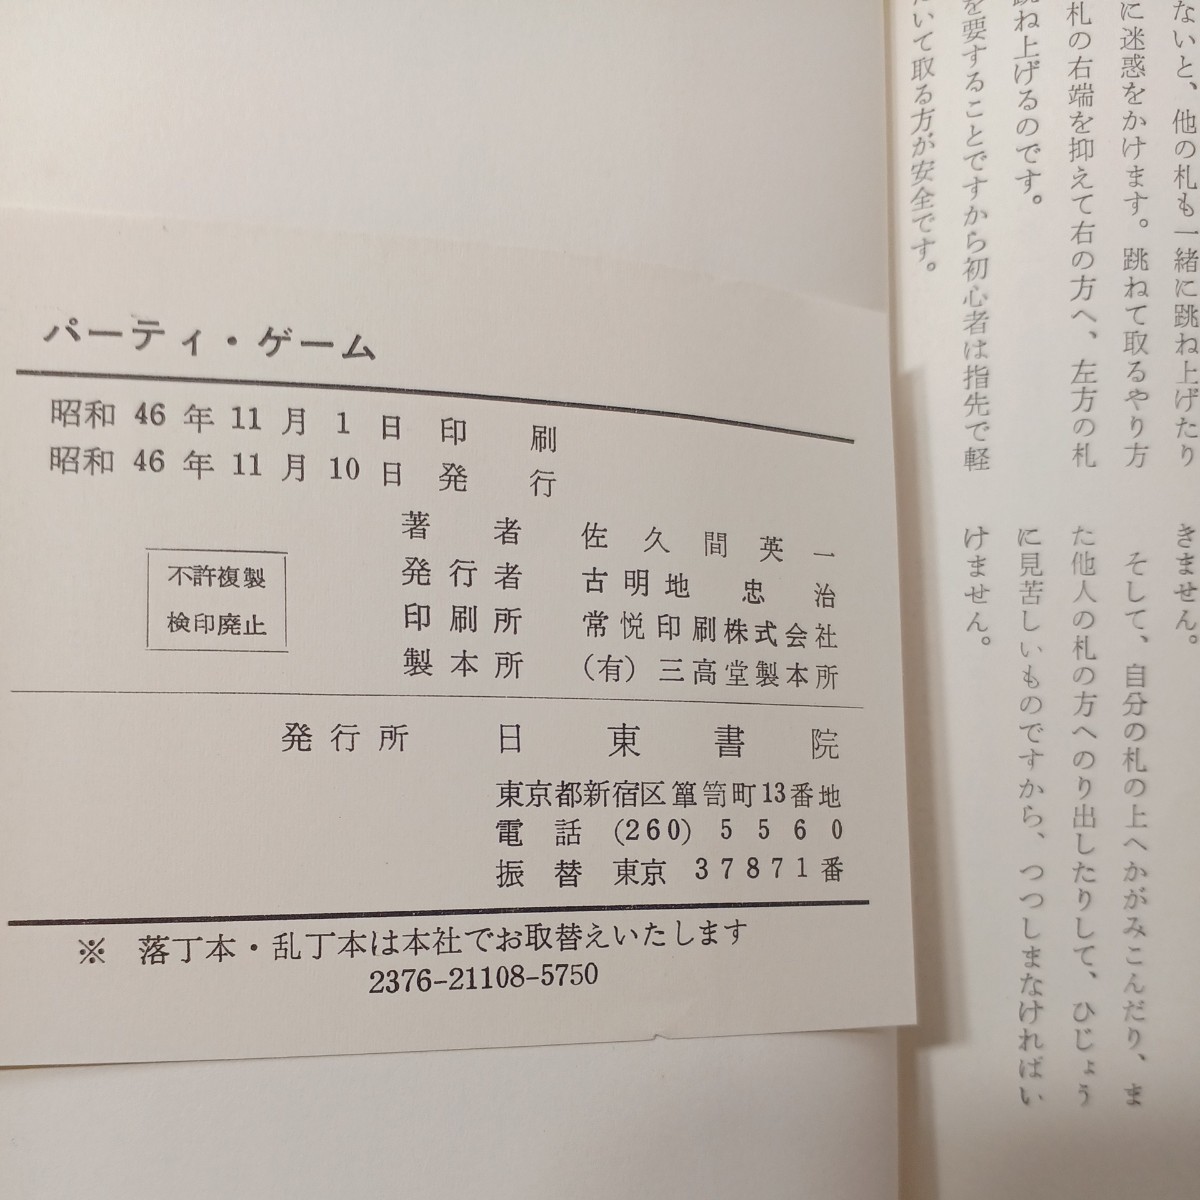 ないと、他の札も一緒に跳ね上げたり
に迷惑をかけます。跳ねて取るやり方
札の右端を抑えて右の方へ、左方の札
跳ね上げるのです。
を要することですから初心者は指先で軽
いて取る方が安全です。
きません。
そして、自分の札の上へかがみこんだり、ま
た他人の札の方へのり出したりして、ひじょう
に見苦しいものですから、つつしまなければい
けません。
パーティ・ゲーム
昭和 46 年 11 月 1 日 印 刷
昭和 46 年 11 月 10 日 発 行
著 者 佐久間英一
発行者 古明地 忠治
印刷所 常悦印刷株式会社
製本所 (有)三高堂製本所
不許複製
検印廃止
発行所 日東書院
東京都新宿区簞笥町13番地
電話 (260) 5560
振替 東京 37871番
※ 落丁本・乱丁本は本社でお取替えいたします
2376-21108-5750